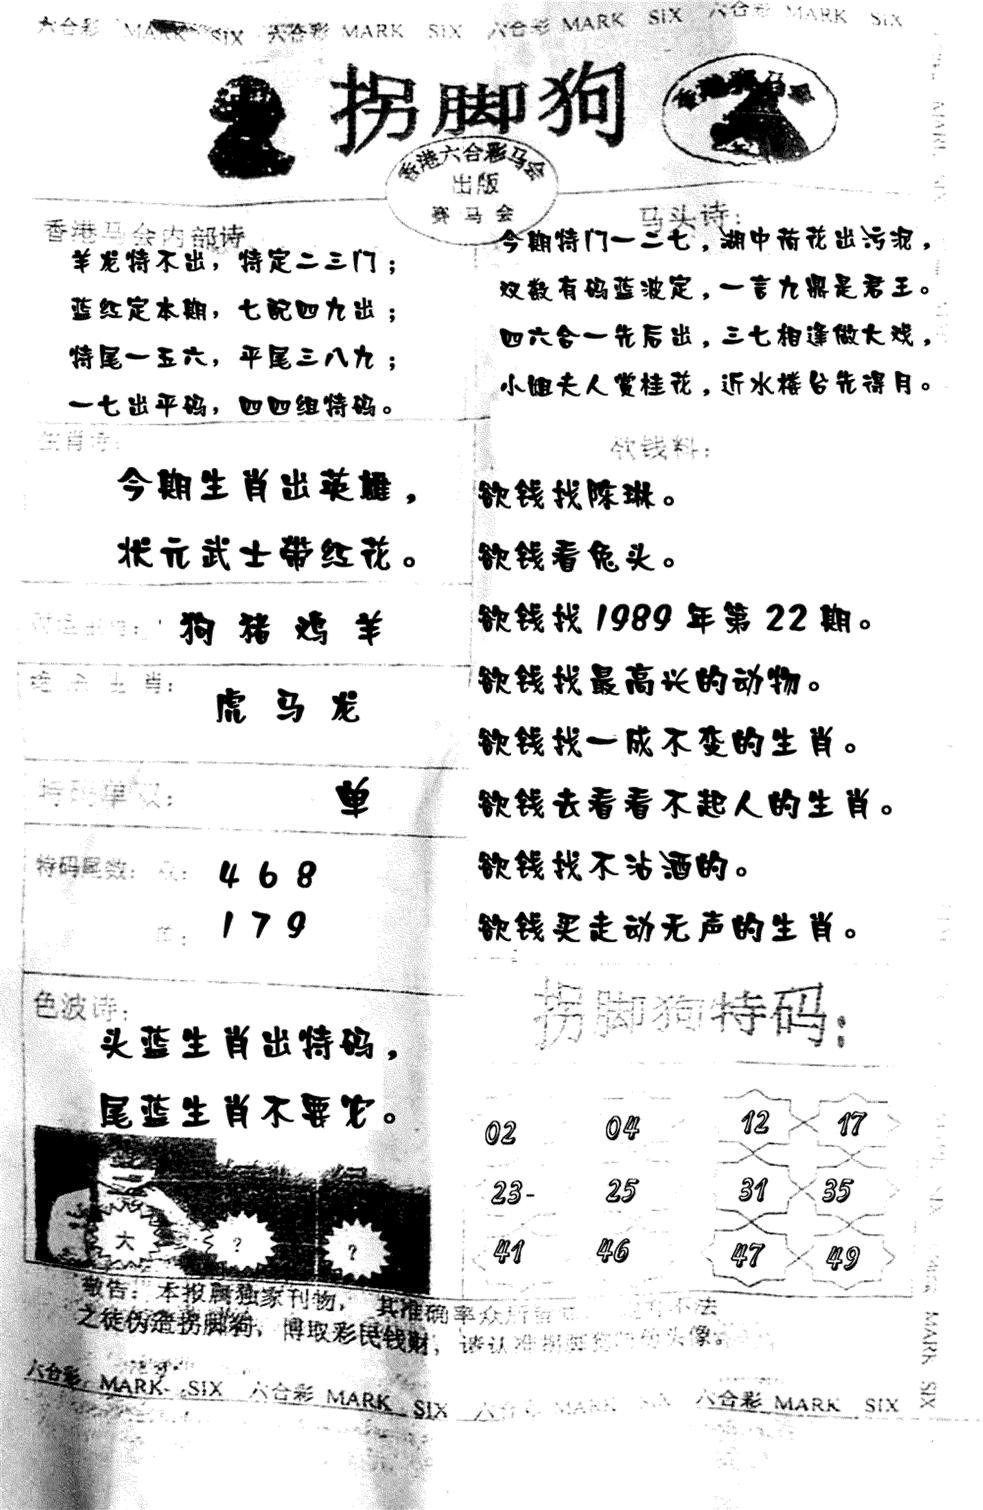 六合彩 MARK SIX 六合彩 MARK SIX 六合彩 MARK SIX 六合彩 MARK SIX
拐脚狗
香港赛马会
香港六合彩马会
出版
赛马会
香港马会内部诗
羊龙特不出，特定二三门；
蓝红定本期，七配四九出；
特尾一五六，平尾三八九；
一七出平码，四四组特码。
马头诗：
今期特门一二七，湖中荷花出污泥，
双数有码蓝波定，一言九鼎是君王。
四六合一先后出，三七相逢做大戏，
小姐夫人赏桂花，近水楼台先得月。
生肖诗：
今期生肖出英雄，
状元武士带红花。
狗 猪 鸡 羊
绝杀生肖：
虎 马 龙
特码单双：
单
特码尾数：双：
4 6 8
单：
1 7 9
色波诗：
头蓝生肖出特码，
尾蓝生肖不要它。
大 ？ ？
欲钱料：
欲钱找陈琳。
欲钱看兔头。
欲钱找1989年第22期。
欲钱找最高兴的动物。
欲钱找一成不变的生肖。
欲钱去看看不起人的生肖。
欲钱找不沾酒的。
欲钱买走动无声的生肖。
拐脚狗特码：
02 04 12 17
23- 25 31 35
41 46 47 49
敬告：本报属独家刊物，其准确率众所 不法
之徒伪造拐脚狗，博取彩民钱财，请认准拐脚狗 头像
六合彩 MARK SIX 六合彩 MARK SIX 六合彩 MARK SIX 六合彩 MARK SIX
MARK SIX
MARK SIX